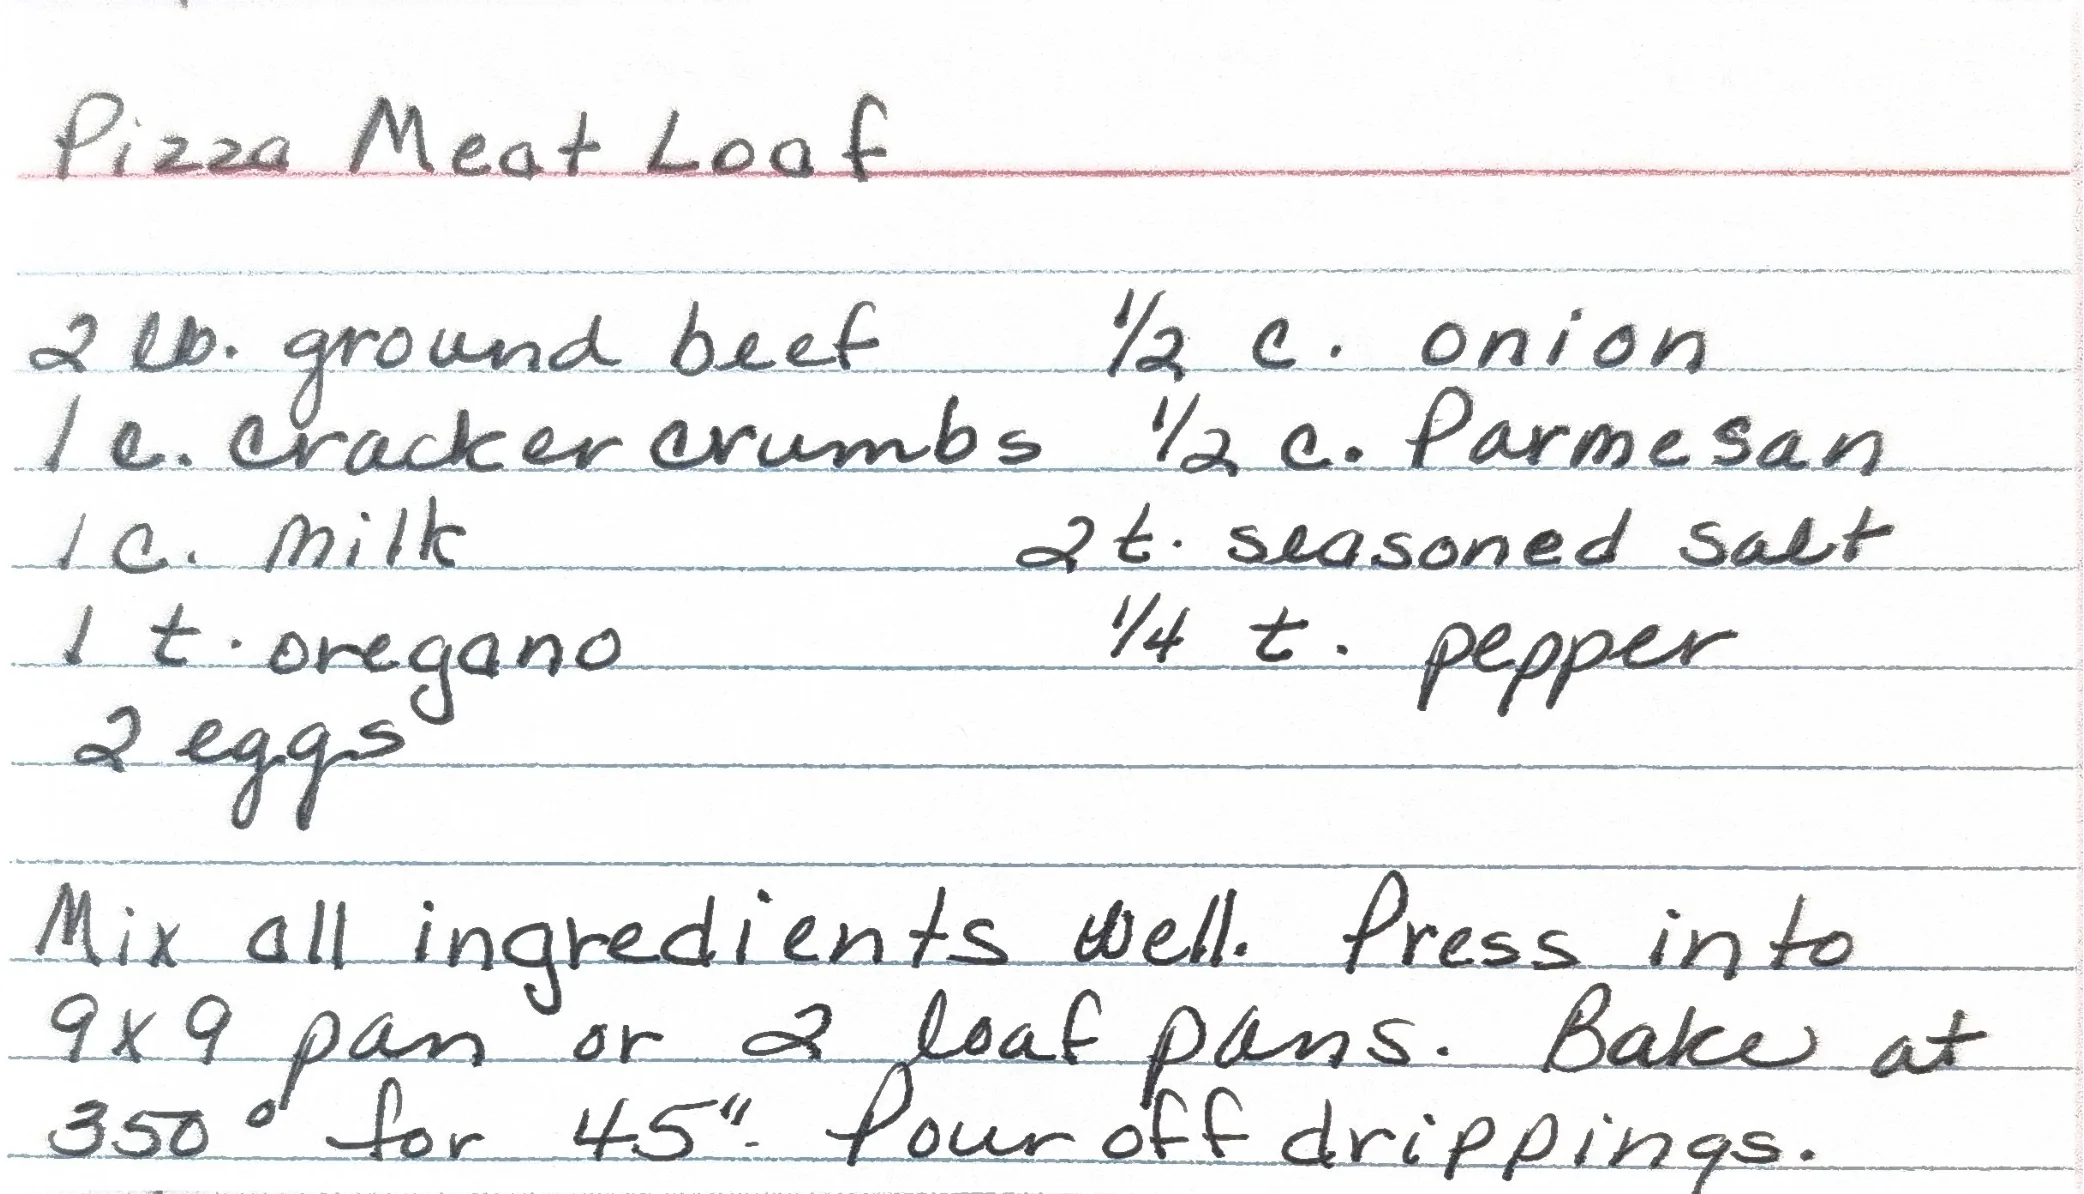 Pizza Meat Loaf
2 lb. ground beef 1/2 c. onion
1 c. cracker crumbs 1/2 c. Parmesan
1 c. milk 2 t. seasoned salt
1 t. oregano 1/4 t. pepper
2 eggs
Mix all ingredients well. Press into
9x9 pan or 2 loaf pans. Bake at
350° for 45". Pour off drippings.